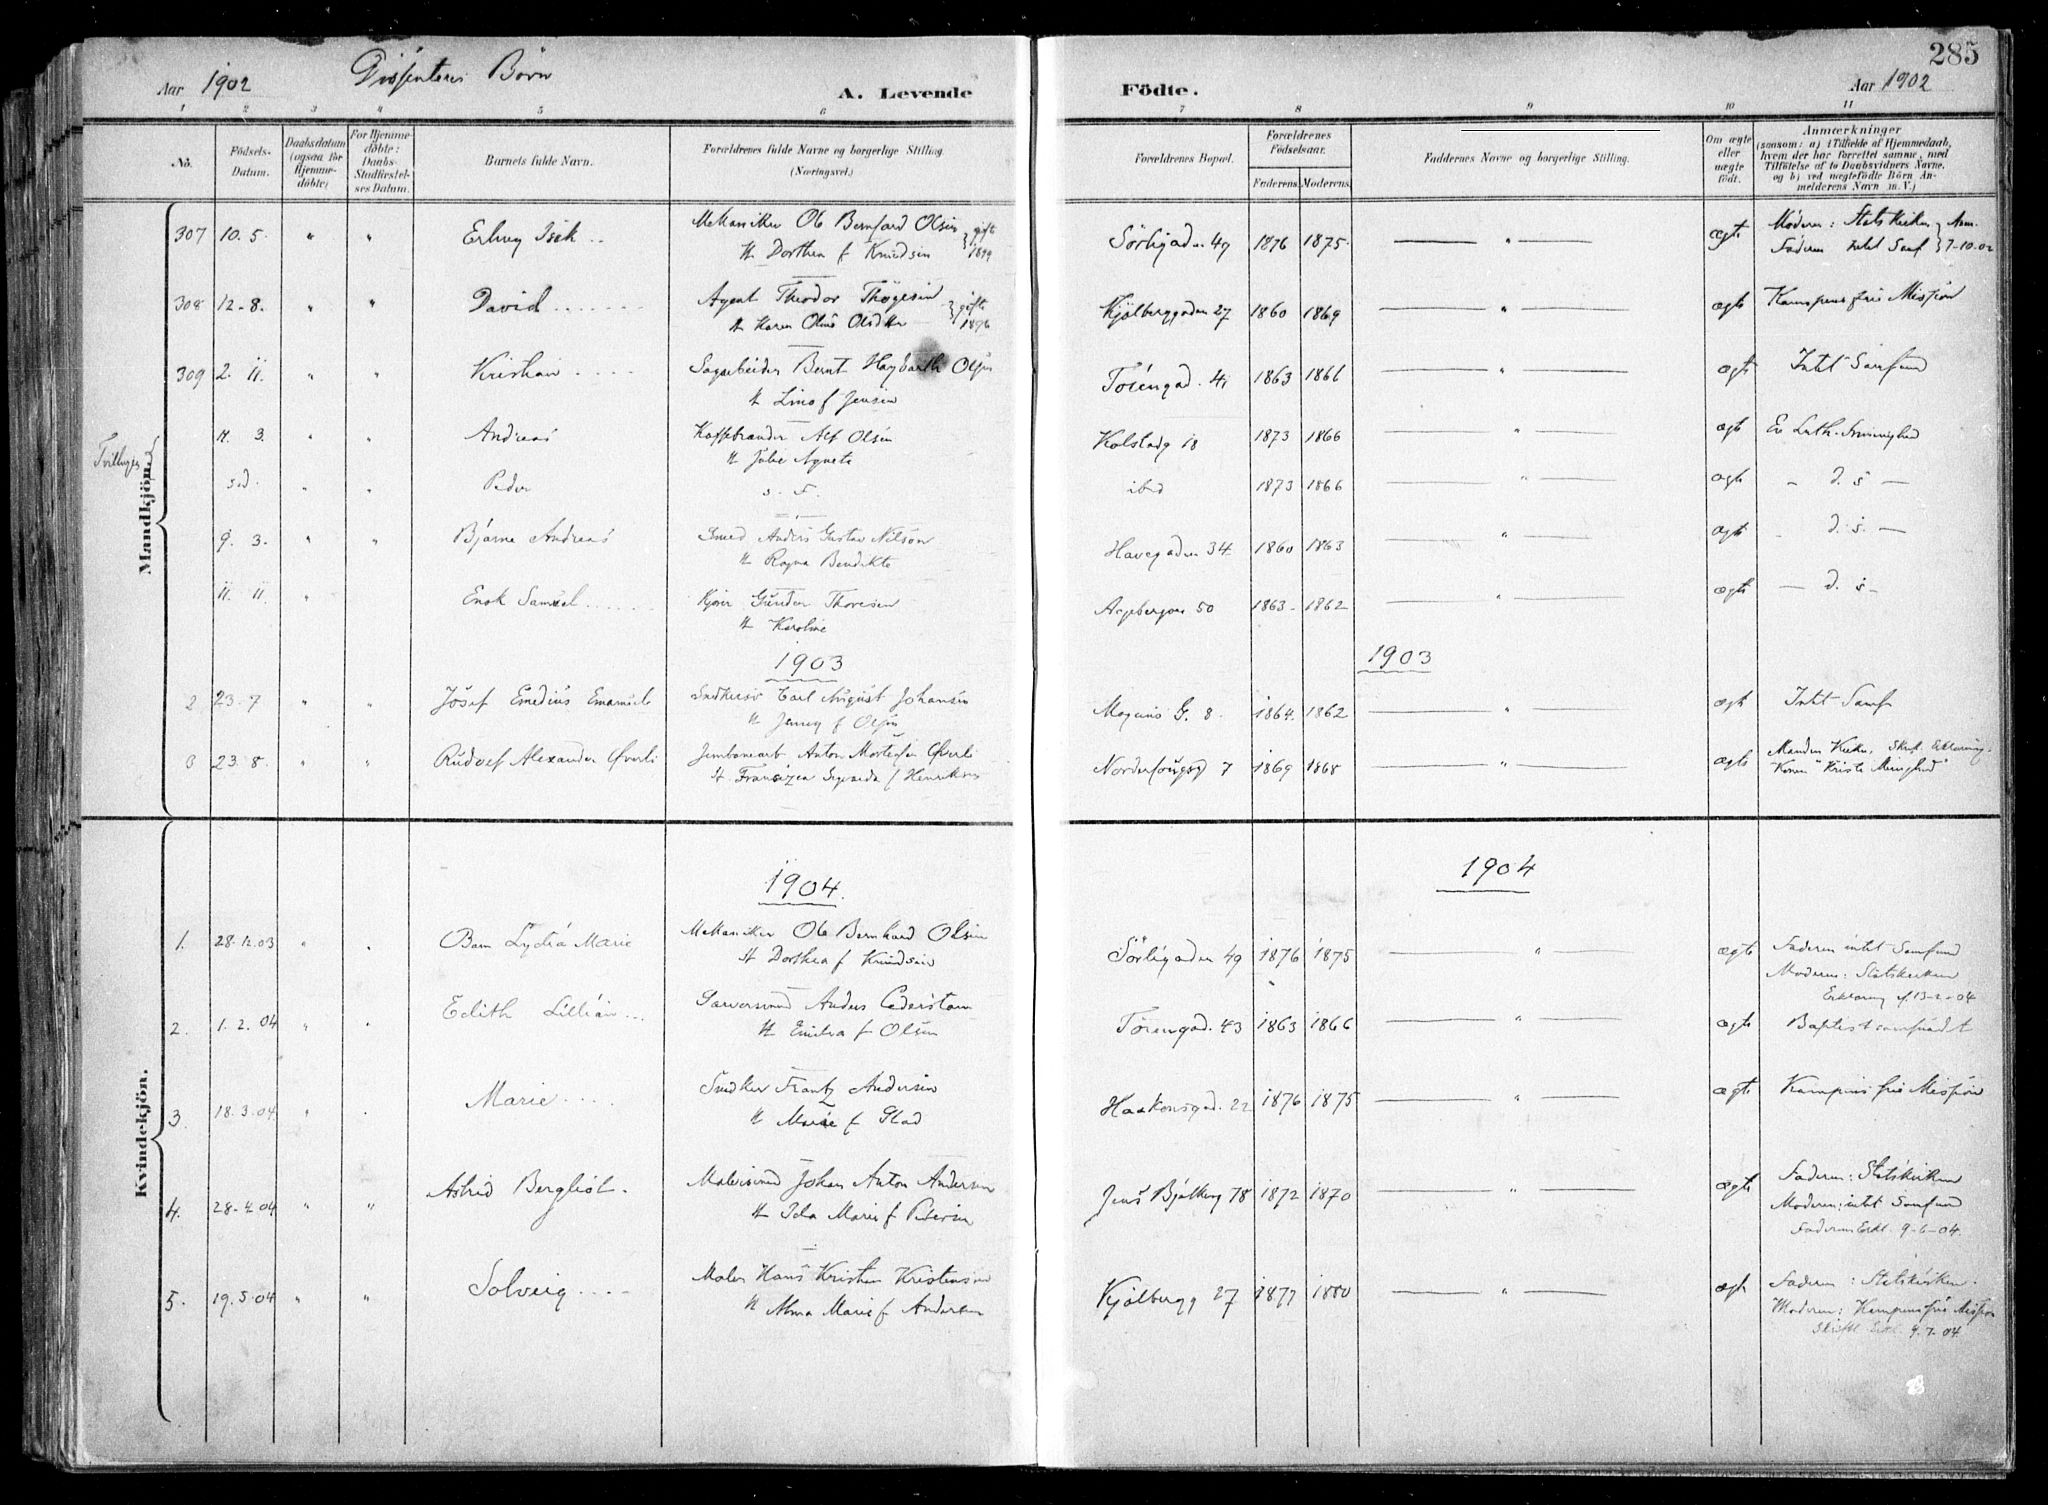 285
Aar 1902 Dissenteres Börn A. Levende Födte. Aar 1902
1 2 3 4 5 6 7 8 9 10 11
No.
Födsels-Datum.
Daabsdatum (ogsaa for Hjemme-döbte)
For Hjemme-döbte: Daabs-Stadfæstel-ses Datum.
Barnets fulde Navn.
Forældrenes fulde Navne og borgerlige Stilling. (Næringsvei.)
Forældrenes Bopæl.
Forældrenes Födselsaar.
Faderens. Moderens.
Faddernes Navne og borgerlige Stilling.
Om ægte eller uægte födt.
Anmærkninger
(saasom: a) i Tilfælde af Hjemmedaab, hvem der har forrettet samme, med Tilföielse af to Daabsvidners Navne. og b) ved uægtefödte Börn An-melderens Navn m. V.)
Mandkjön.
307 10. 5. " " Erling Isak Mekaniker Ole Bernhard Olsen } gift Sörligaden 49 1876 1875. " ægte Moderen: Statskirken } Anm.
H. Dorthea f Knudsen 1899 Faderen intet Samf } 7-10.02
308 12-8. " " David Agent Theodor Thögesen } gifte Kjölberggaden 27 1860 1869 " ægte Kampens frie Mission
H. Karen Oline 1896
309 2. 11. " " Kristian Bernt Olsen Toiengad. 41 1863 1866 " ægte Intet Samfund
H. Lina f Jensen
Tvillinger { 11. 3. " " Andreas Kaffebrænder Alf Olsen Kolstadg 18 1873 1866 " ægte Ev Luth. Frimenighed
H. Julie Agnete
s.d. " " Peder s. F. ibid 1873 1866 " ægte — d. s —
9. 3. " " Bjarne Andreas Smed Anders Gustav Nilson Havegaden 34 1860 1863 " ægte — d. s. —
H. Ragna Bendikte
11. 11. " Enok Samuel Kjörer Gunder Thoresen Aagebergvei 50 1863- 1862 " ægte — d. s —
H. Karoline
1903 1903
2 23. 7 " " Josef Emedius Emanuel Snedkersv Carl August Johansen Magnus G. 8. 1864. 1862 " ægte Intet Samf
H. Jenny f Olsen
3 23. 8. " " Rudolf Alexander Øverli Jernbanearb Anton Mortensen Øverli 7 1869 1868 " ægte Manden Kirken, Skrift. Erklæring.
H. f Henriksen Konen "Kristi Menighed"
Kvindekjön.
1904. 1904
1. 28.12.03 " " Barn Lydia Marie Mekaniker Ole Bernhard Olsen Sörligaden 49 1876 1875 " ægte Faderen intet Samfund
H. Dorthea f Knudsen Moderen: Statskirken
Erklæring af 13-2-04
2. 1. 2. 04 " " Edith Lillian Garversvend Anders Cederstam Töiengad. 43 1863 1866 " ægte Baptistsamfundet
H. Emilia f Olsen
3 18. 3. 04 " . Marie Snedker Frantz Andersen Haakonsgad. 22 1876 1875 " ægte Kampens frie Mission
H. Marie f Stad
4. 28-4.04 " " Astrid Bergliot. Malersvend Johan Anton Andersen Jens Bjelkesg 78 1872 1870 " ægte Faderen: Statskirken
H. Ida Marie f Petersen Moderen: intet Samfund
Faderens Erkl. 9-6-04.
5. 19. 5. 04 " " Solveig Maler Hans Kristian Kristensen Kjölbergg 27 1877 1880 " ægte Faderen: Statskirken.
H. Alma Marie f Andersen Moderen: Kampens frie Mission
Skriftl. Erkl. 9. 7. 04